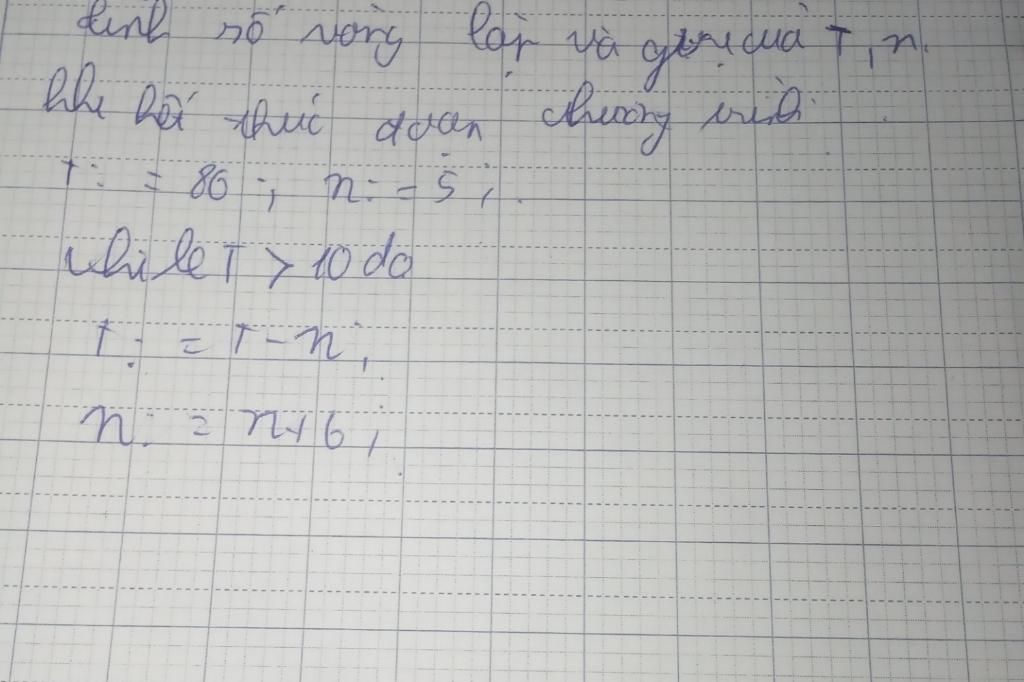 tính số vòng lặp và giá trị của T, n
khi kết thúc đoạn chương trình:
T: = 86; n: = 5;
while T > 10 do
T: = T - n;
n: = n+6;